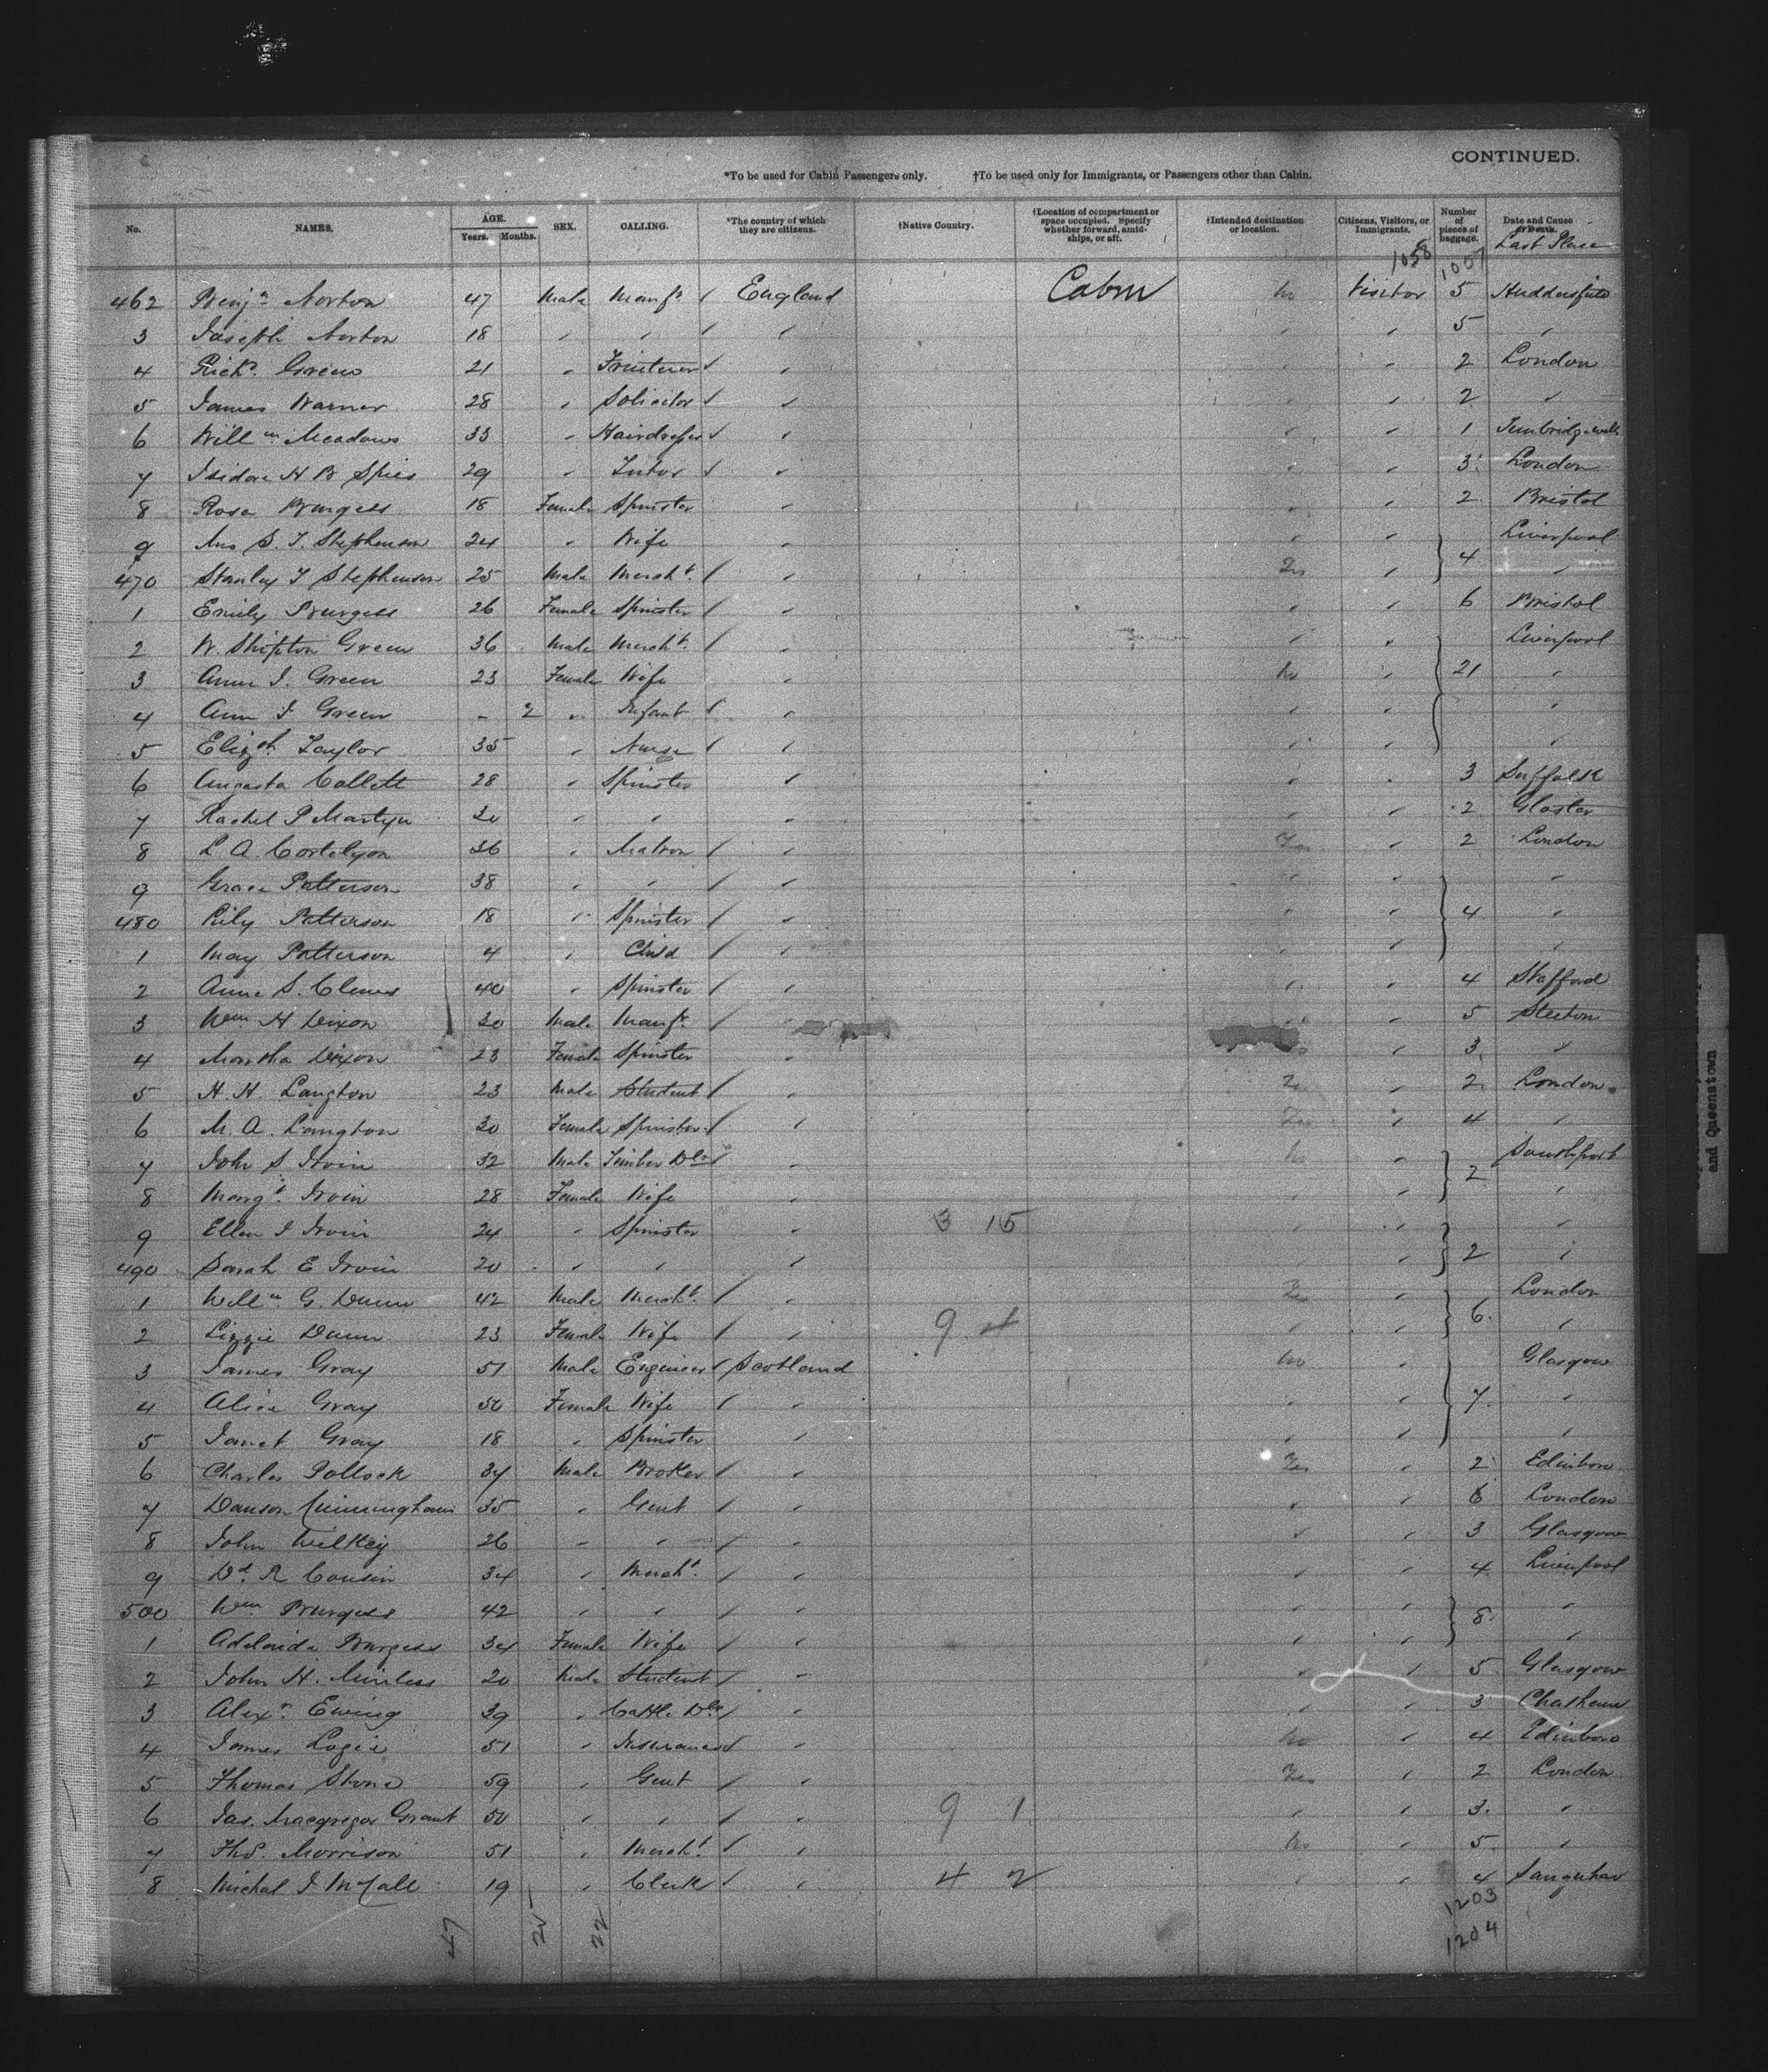 CONTINUED.
*To be used for Cabin Passengers only. †To be used only for Immigrants, or Passengers other than Cabin.
No. NAMES. AGE. Years. Months. SEX. CALLING. *The country of which they are citizens. †Native Country. †Location of compartment or space occupied. Specify whether forward, amidships, or aft. †Intended destination or location. Citizens, Visitors, or Immigrants. Number of pieces of baggage. Date and Cause of Death. Last Place
1058 1057
462 Benjn Norton 47 Male Manfr / England Cabin No Visitor 5 Huddersfield
3 Joseph Norton 18 " " / " " " 5 "
4 Richd. Green 21 " Fruiterer / " " " 2 London
5 James Warner 28 " Solicitor / " " " 2 "
6 Willm Meadows 33 " Hairdresser / " " " 1 Tunbridge wells
7 Isidore H B Spies 29 " Tutor / " " " 3 London
8 Rosa Burgess 18 Female Spinster " " " 2 Bristol
9 Mrs S. T. Stephenson 24 " Wife " " " Liverpool
470 Stanley T Stephenson 25 Male Mercht. / " Yes " 4 "
1 Emily Burgess 26 Female Spinster / " " " 6 Bristol
2 W. Shipton Green 36 Male Mercht. / " " " Liverpool
3 Annie I. Green 23 Female Wife " No " 21 "
4 Ann I Green - 2 " Infant / " " " "
5 Elizth Taylor 35 " Nurse / " " " "
6 Augusta Collett 28 " Spinster " " " 3 Suffolk
7 Rachel P Martyn 30 " " " " " 2 Gloster
8 L A. Cortelyon 36 " Matron / " Yes " 2 London
9 Grace Patterson 38 " " / " " " "
480 Lily Patterson 18 " Spinster / " " " 4 "
1 May Patterson 4 " Child / " " " "
2 Annie S. Clewes 40 " Spinster / " " " 4 Stafford
3 Wm H Dixon 30 Male Manfr. / " " " 5 Steeton
4 Martha Dixon 23 Female Spinster " " 3 "
5 H. H. Langton 23 Male Student / " Yes " 2 London
6 M. A. Langton 30 Female Spinster / " Yes " 4 "
7 John S. Irvin 32 Male Timber Dlr / " No Southport
8 Margt. Irvin 28 Female Wife " " " 2 "
9 Ellen I Irvin 24 " Spinster " 3 15 " " "
490 Sarah E Irvin 20 " " " " " 2 "
1 Willm G. Dunn 42 Male Mercht. / " Yes " London
2 Lizzie Dunn 23 Female Wife / " 9 4 " " 6 "
3 James Gray 51 Male Engineer / Scotland No " Glasgow
4 Alice Gray 50 Female Wife / " " " 7 "
5 Janet Gray 18 " Spinster " " " "
6 Charles Pollock 34 Male Broker / " Yes " 2 Edinboro
7 Dawson Cunningham 35 " Gent / " " " 6 London
8 John Wilkey 26 " " / " " " 3 Glasgow
9 Dd. R Cousin 34 " Mercht. / " " " 4 Liverpool
500 Wm Burgess 42 " " / " " " 8 "
1 Adelaide Burgess 34 Female Wife / " " " "
2 John H. 20 Male Student / " " " 5 Glasgow
3 Alexr. Ewing 39 " Cattle Dlr / " " " 3 Chatham
4 James Logie 51 " Insurance / " No " 4 Edinboro
5 Thomas Stone 59 " Gent / " Yes " 2 London
6 Jas. Macgregor Grant 50 " " / " 9 1 " " 3 "
7 Thos. Morrison 51 " Mercht. / " No " 5 "
8 Michal J McCall 19 " Clerk / " 4 2 " " 4
47 25 22 1203
1204
and Queenstown